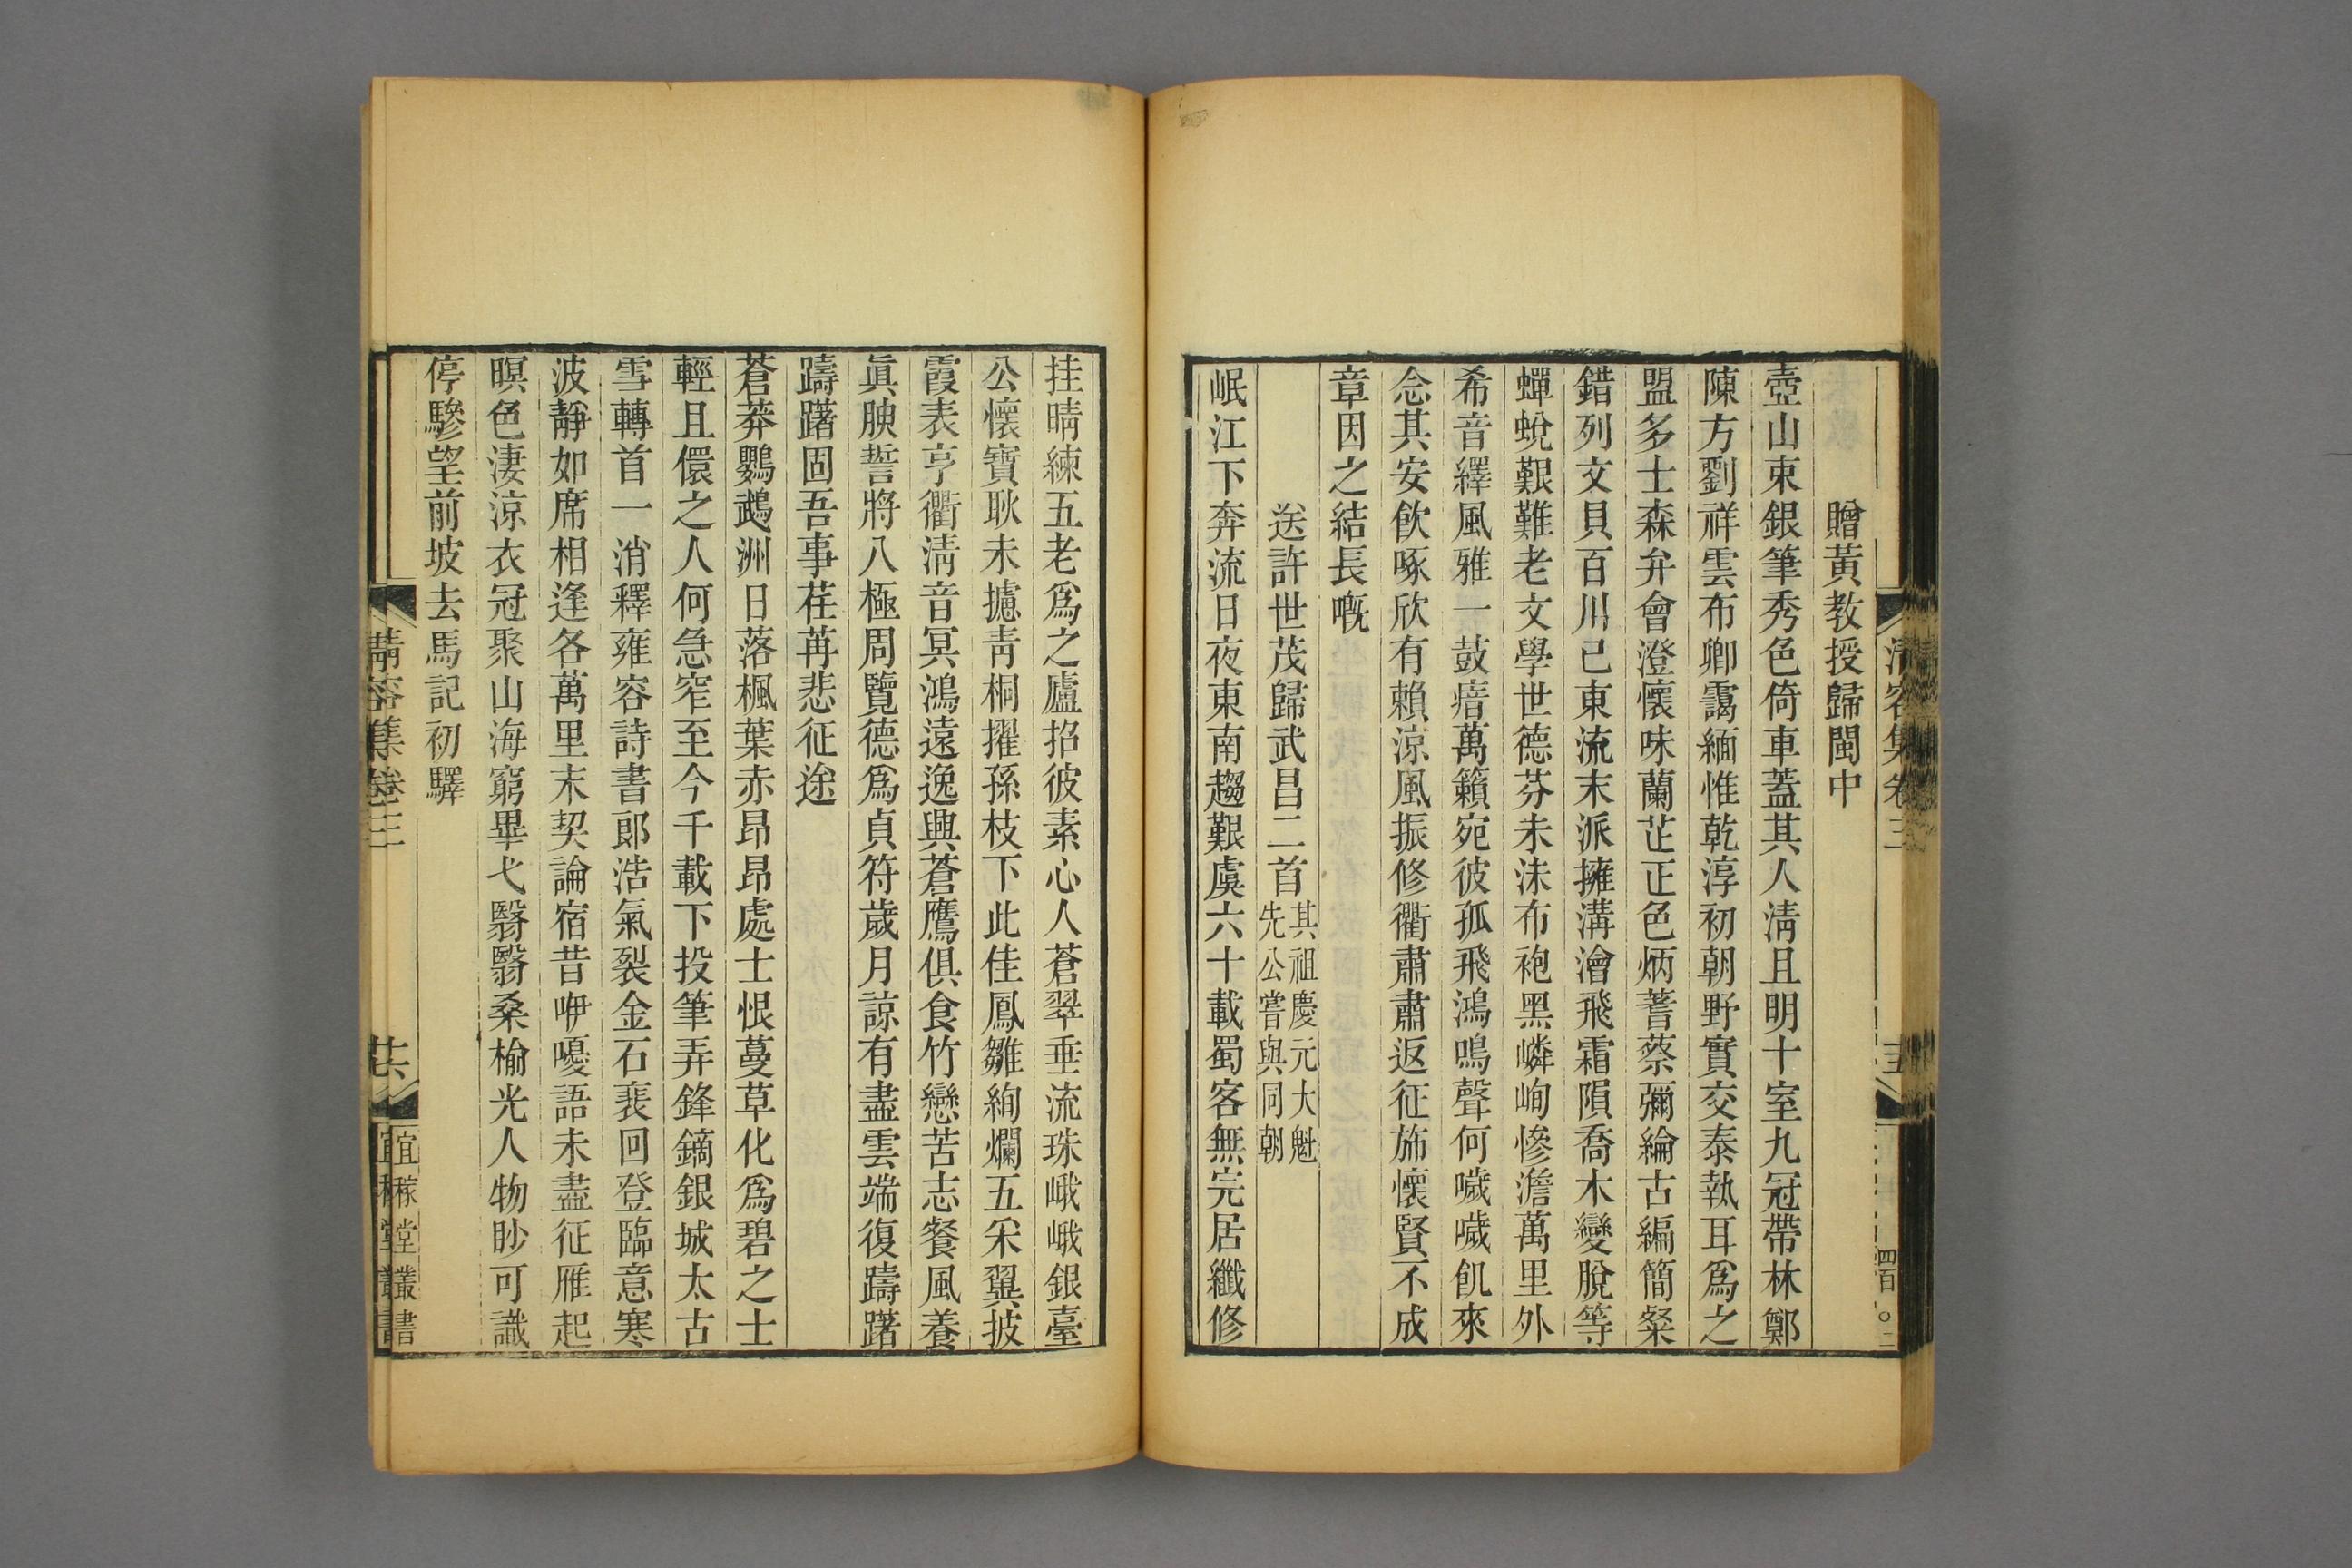 清容集卷三
贈黃教授歸閩中
壺山束銀筆秀色倚車蓋其人淸且明十室九冠帶林鄭
陳方劉祥雲布卿靄緬惟乾淳初朝野實交泰執耳爲之
盟多士森弁會澄懷味蘭芷正色炳蓍蔡彌綸古編簡粲
錯列文貝百川已東流末派擁溝澮飛霜隕喬木變脫等
蟬蛻艱難老文學世德芬未沬布袍黑嶙峋慘澹萬里外
希音繹風雅一鼓瘖萬籟宛彼孤飛鴻鳴聲何噦噦飢來
念其安飮啄欣有賴涼風振修衢肅肅返征斾懷賢不成
章因之結長嘅
送許世茂歸武昌二首
其祖慶元大魁
先公嘗與同朝
岷江下奔流日夜東南趨艱虞六十載蜀客無完居纖修
挂晴練五老爲之廬招彼素心人蒼翠垂流珠峨峨銀臺
公懷寶耿未攄靑桐擢孫枝下此佳鳳雛絢爛五釆翼披
霞表亨衢淸音冥鴻遠逸興蒼鷹俱食竹戀苦志餐風養
眞腴誓將八極周覽德爲貞符歲月諒有盡雲端復躊躇
躊躇固吾事荏苒悲征途
蒼莽鸚鵡洲日落楓葉赤昂昂處士恨蔓草化爲碧之士
輕且儇之人何急窄至今千載下投筆弄鋒鏑銀城太古
雪轉首一消釋雍容詩書郞浩氣裂金石裴回登臨意寒
波靜如席相逢各萬里末契論宿昔咿嚘語未盡征雁起
暝色淒涼衣冠聚山海窮畢弋翳翳桑楡光人物眇可識
停驂望前坡去馬記初驛
淸容集卷三
廿六
宜稼堂叢書